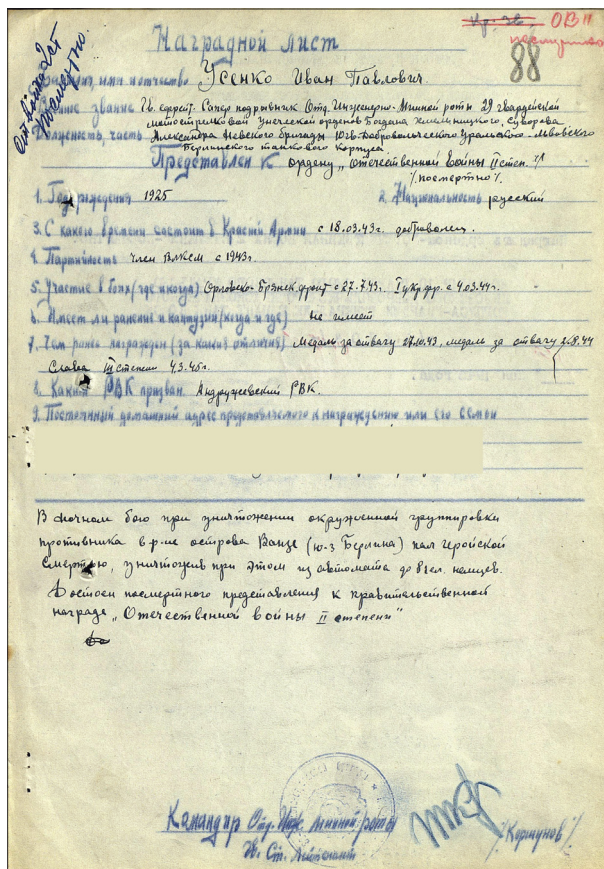 Кр. Зв. ОВ II
посмертно
88
От. войны 2 ст
посмертно.
Наградной лист
Фамилия, имя и отчество Усенко Иван Павлович
Военное звание Гв. ефрейт. Сапер подрывник Отд. Инженерно-Минной роты 29 гвардейской
мотострелковой Унечской орденов Богдана Хмельницкого, Суворова
Должность, часть Александра Невского бригады 10 гв. Добровольческого Уральско-Львовского
Берлинского танкового корпуса.
Представлен к ордену „Отечественной войны II степ."
/посмертно/.
1. Год рождения 1925 2. Национальность русский
3. С какого времени состоит в Красной Армии с 18.03.43г. доброволец.
4. Партийность член ВЛКСМ с 1943г.
5. Участие в боях (где и когда) Орловско-Брянск. фронт с 27.7.43. I укр. фр. с 4.03.44г.
6. Имеет ли ранения и контузии (когда и где) не имеет
7. Чем ранее награжден (за какие отличия) Медаль за отвагу 27.10.43, медаль за отвагу 8.44
Слава III степени 4.3.45г.
8. Каким РВК призван Андрушевский РВК.
9. Постоянный домашний адрес представляемого к награждению или его семьи
В ночном бою при уничтожении окруженной группировки
противника в р-не острова Ванзе (ю-з Берлина) пал геройской
смертью, уничтожив при этом из автомата до 8 чел. немцев.
Достоин посмертного представления к правительственной
награде „Отечественной войны II степени"
Командир Отд. Инж. Минной роты
Гв. Ст. Лейтенант /Коршунов/